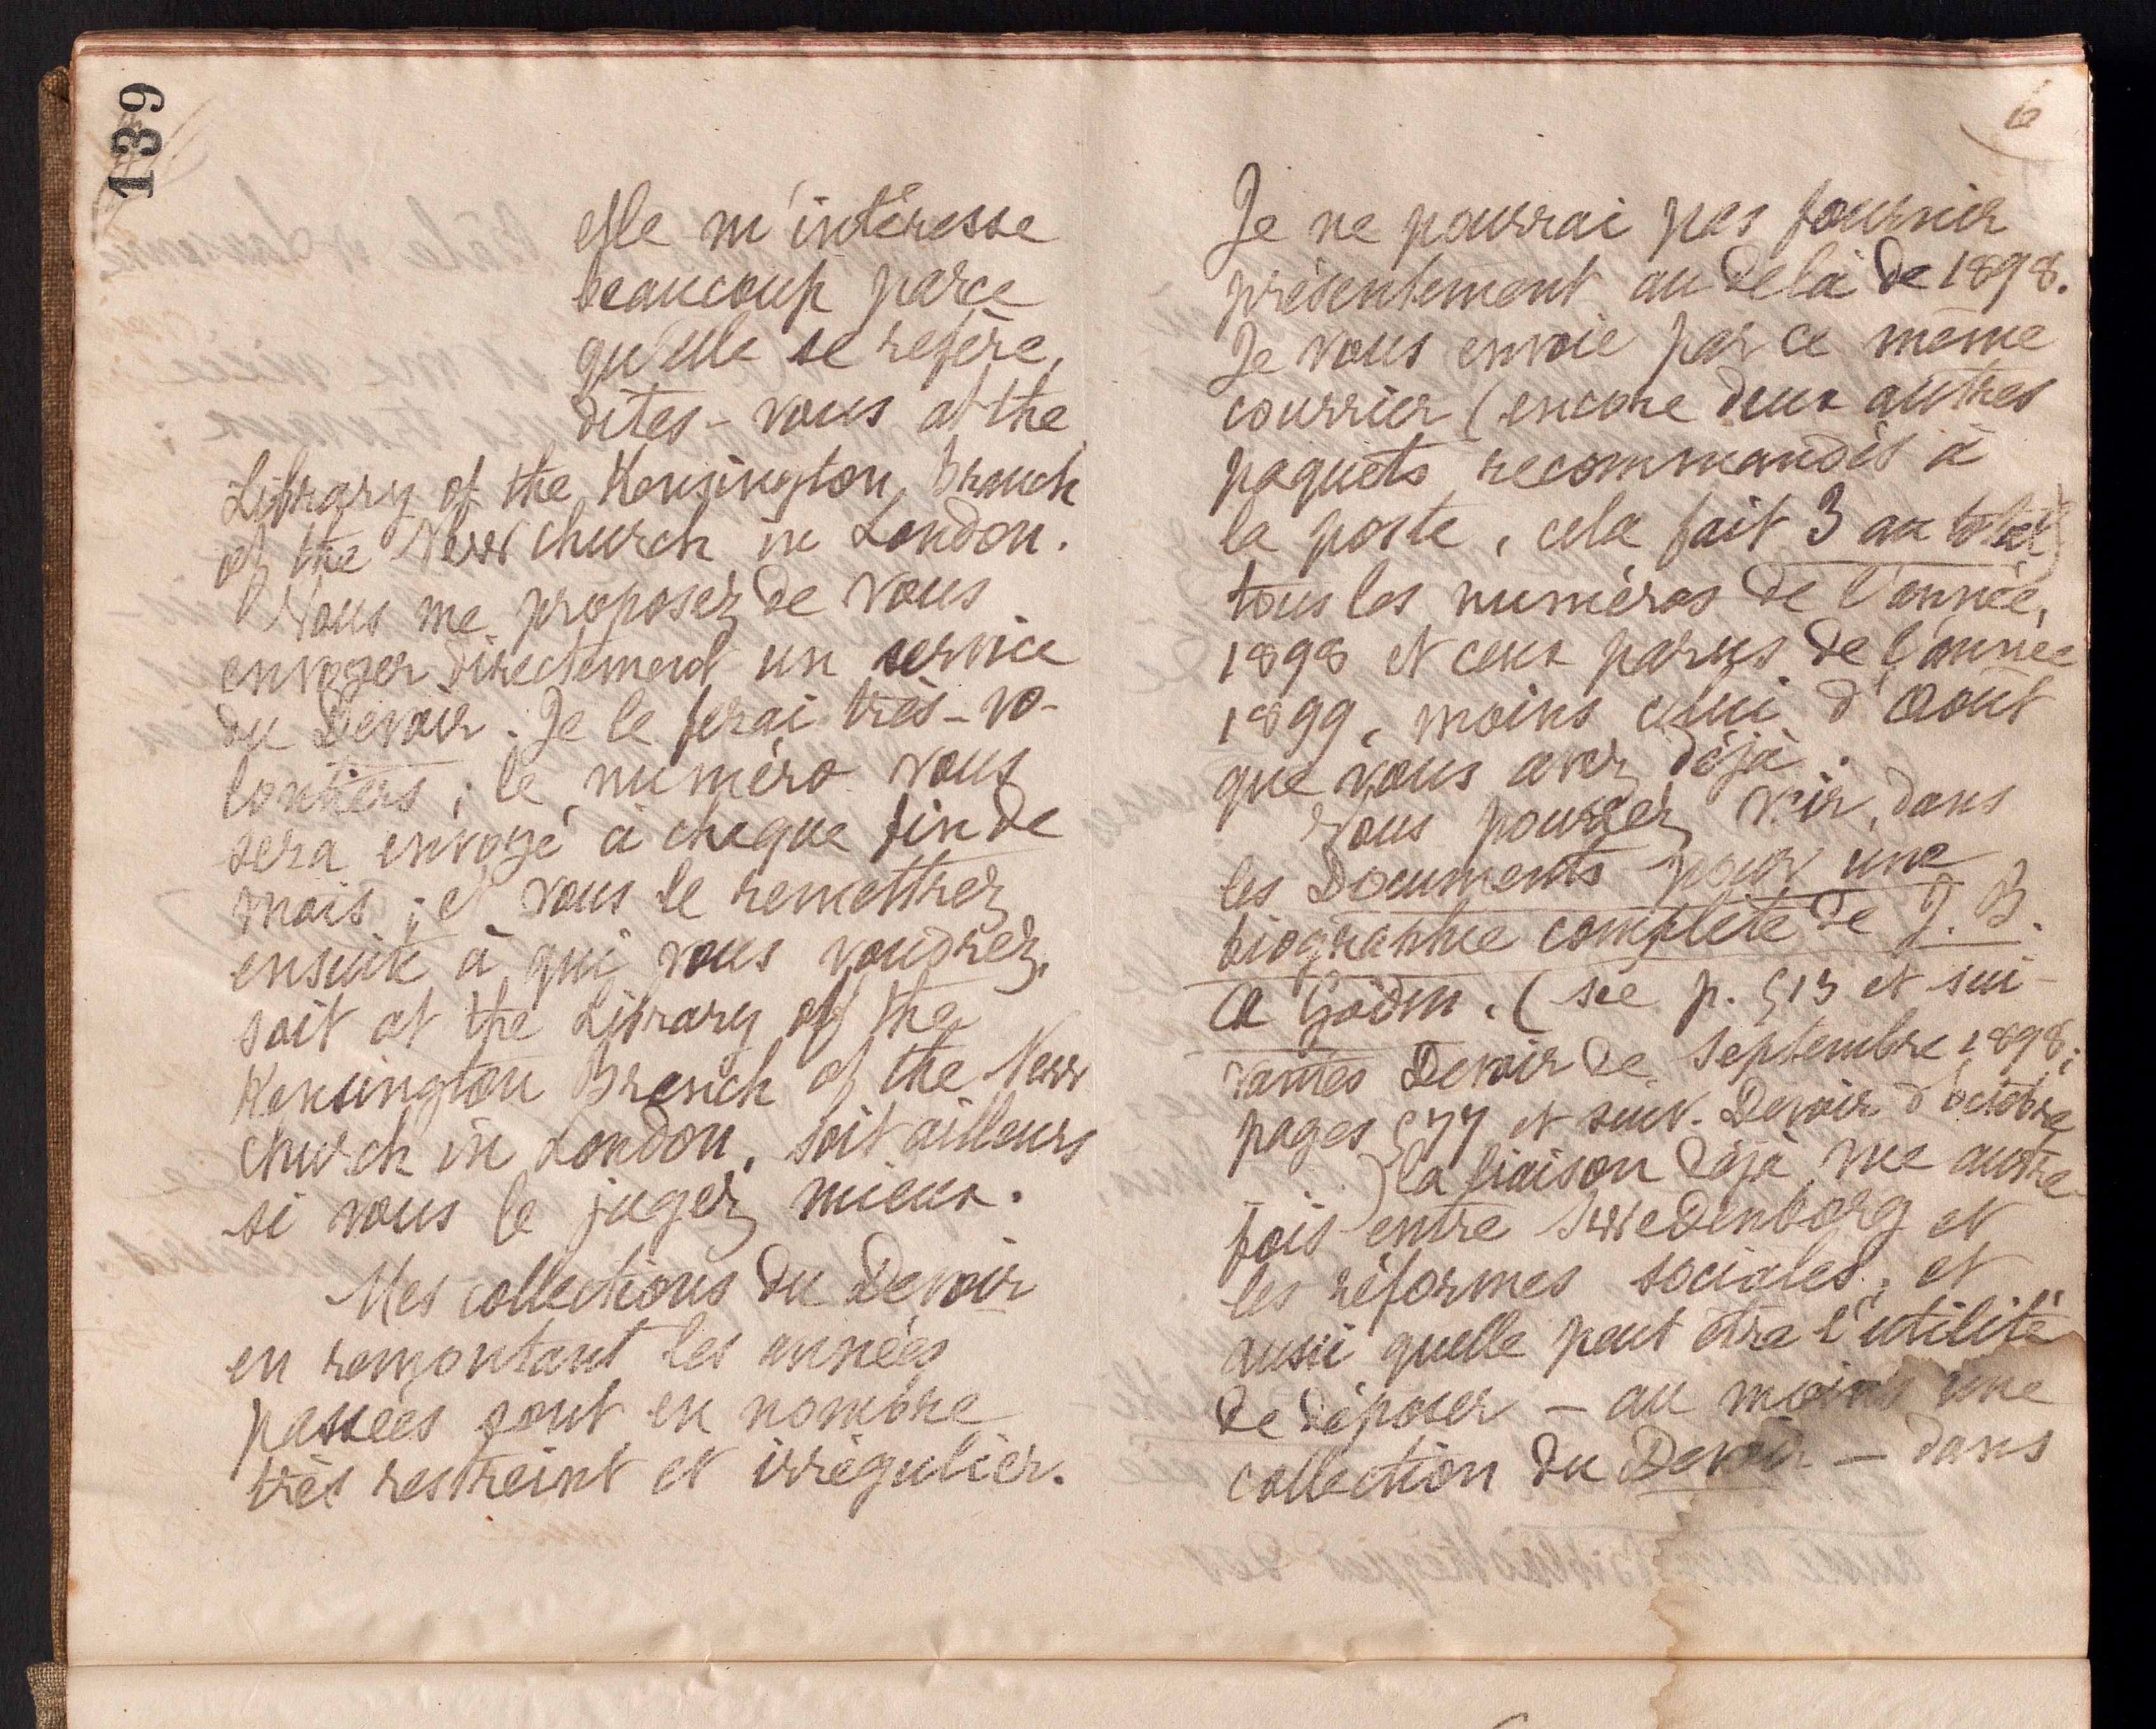 139
elle m'intéresse
beaucoup parce
qu'elle se refère,
dites-vous at the
Library of the Kensington Branch
of the New church in London.
Vous me proposez de vous
envoyer directement un service
du Devoir. Je le ferai très-vo-
lontiers ; le numéro vous
sera envoyé à chaque fin de
mois ; et vous le remettrez
ensuite à qui vous voudrez,
soit at the Library of the
Kensington Branch of the New
church in London, soit ailleurs
si vous le jugez mieux.
Mes collections du Devoir
en remontant les années
passées sont en nombre
très restreint et irrégulier.
6
Je ne pourrai pas fournir
présentement au delà de 1898.
Je vous envoie par ce même
courrier (encore deux autres
paquets recommandés à
la poste, cela fait 3 au total)
tous les numéros de l'année,
1898 et ceux parus de l'année
1899, moins celui d'Août
que vous avez déjà.
Vous pourrez voir, dans
les Documents pour une
biographie complète de J. B.
A Godin. (see p. 513 et sui-
vantes Devoir de Septembre 1898;
pages 577 et suiv. Devoir d'octobre
) la liaison déjà vue autre
fois entre Swedenborg et
les réformes sociales; et
aussi quelle peut être l'utilité
de déposer - au moins une
collection du Devoir - dans